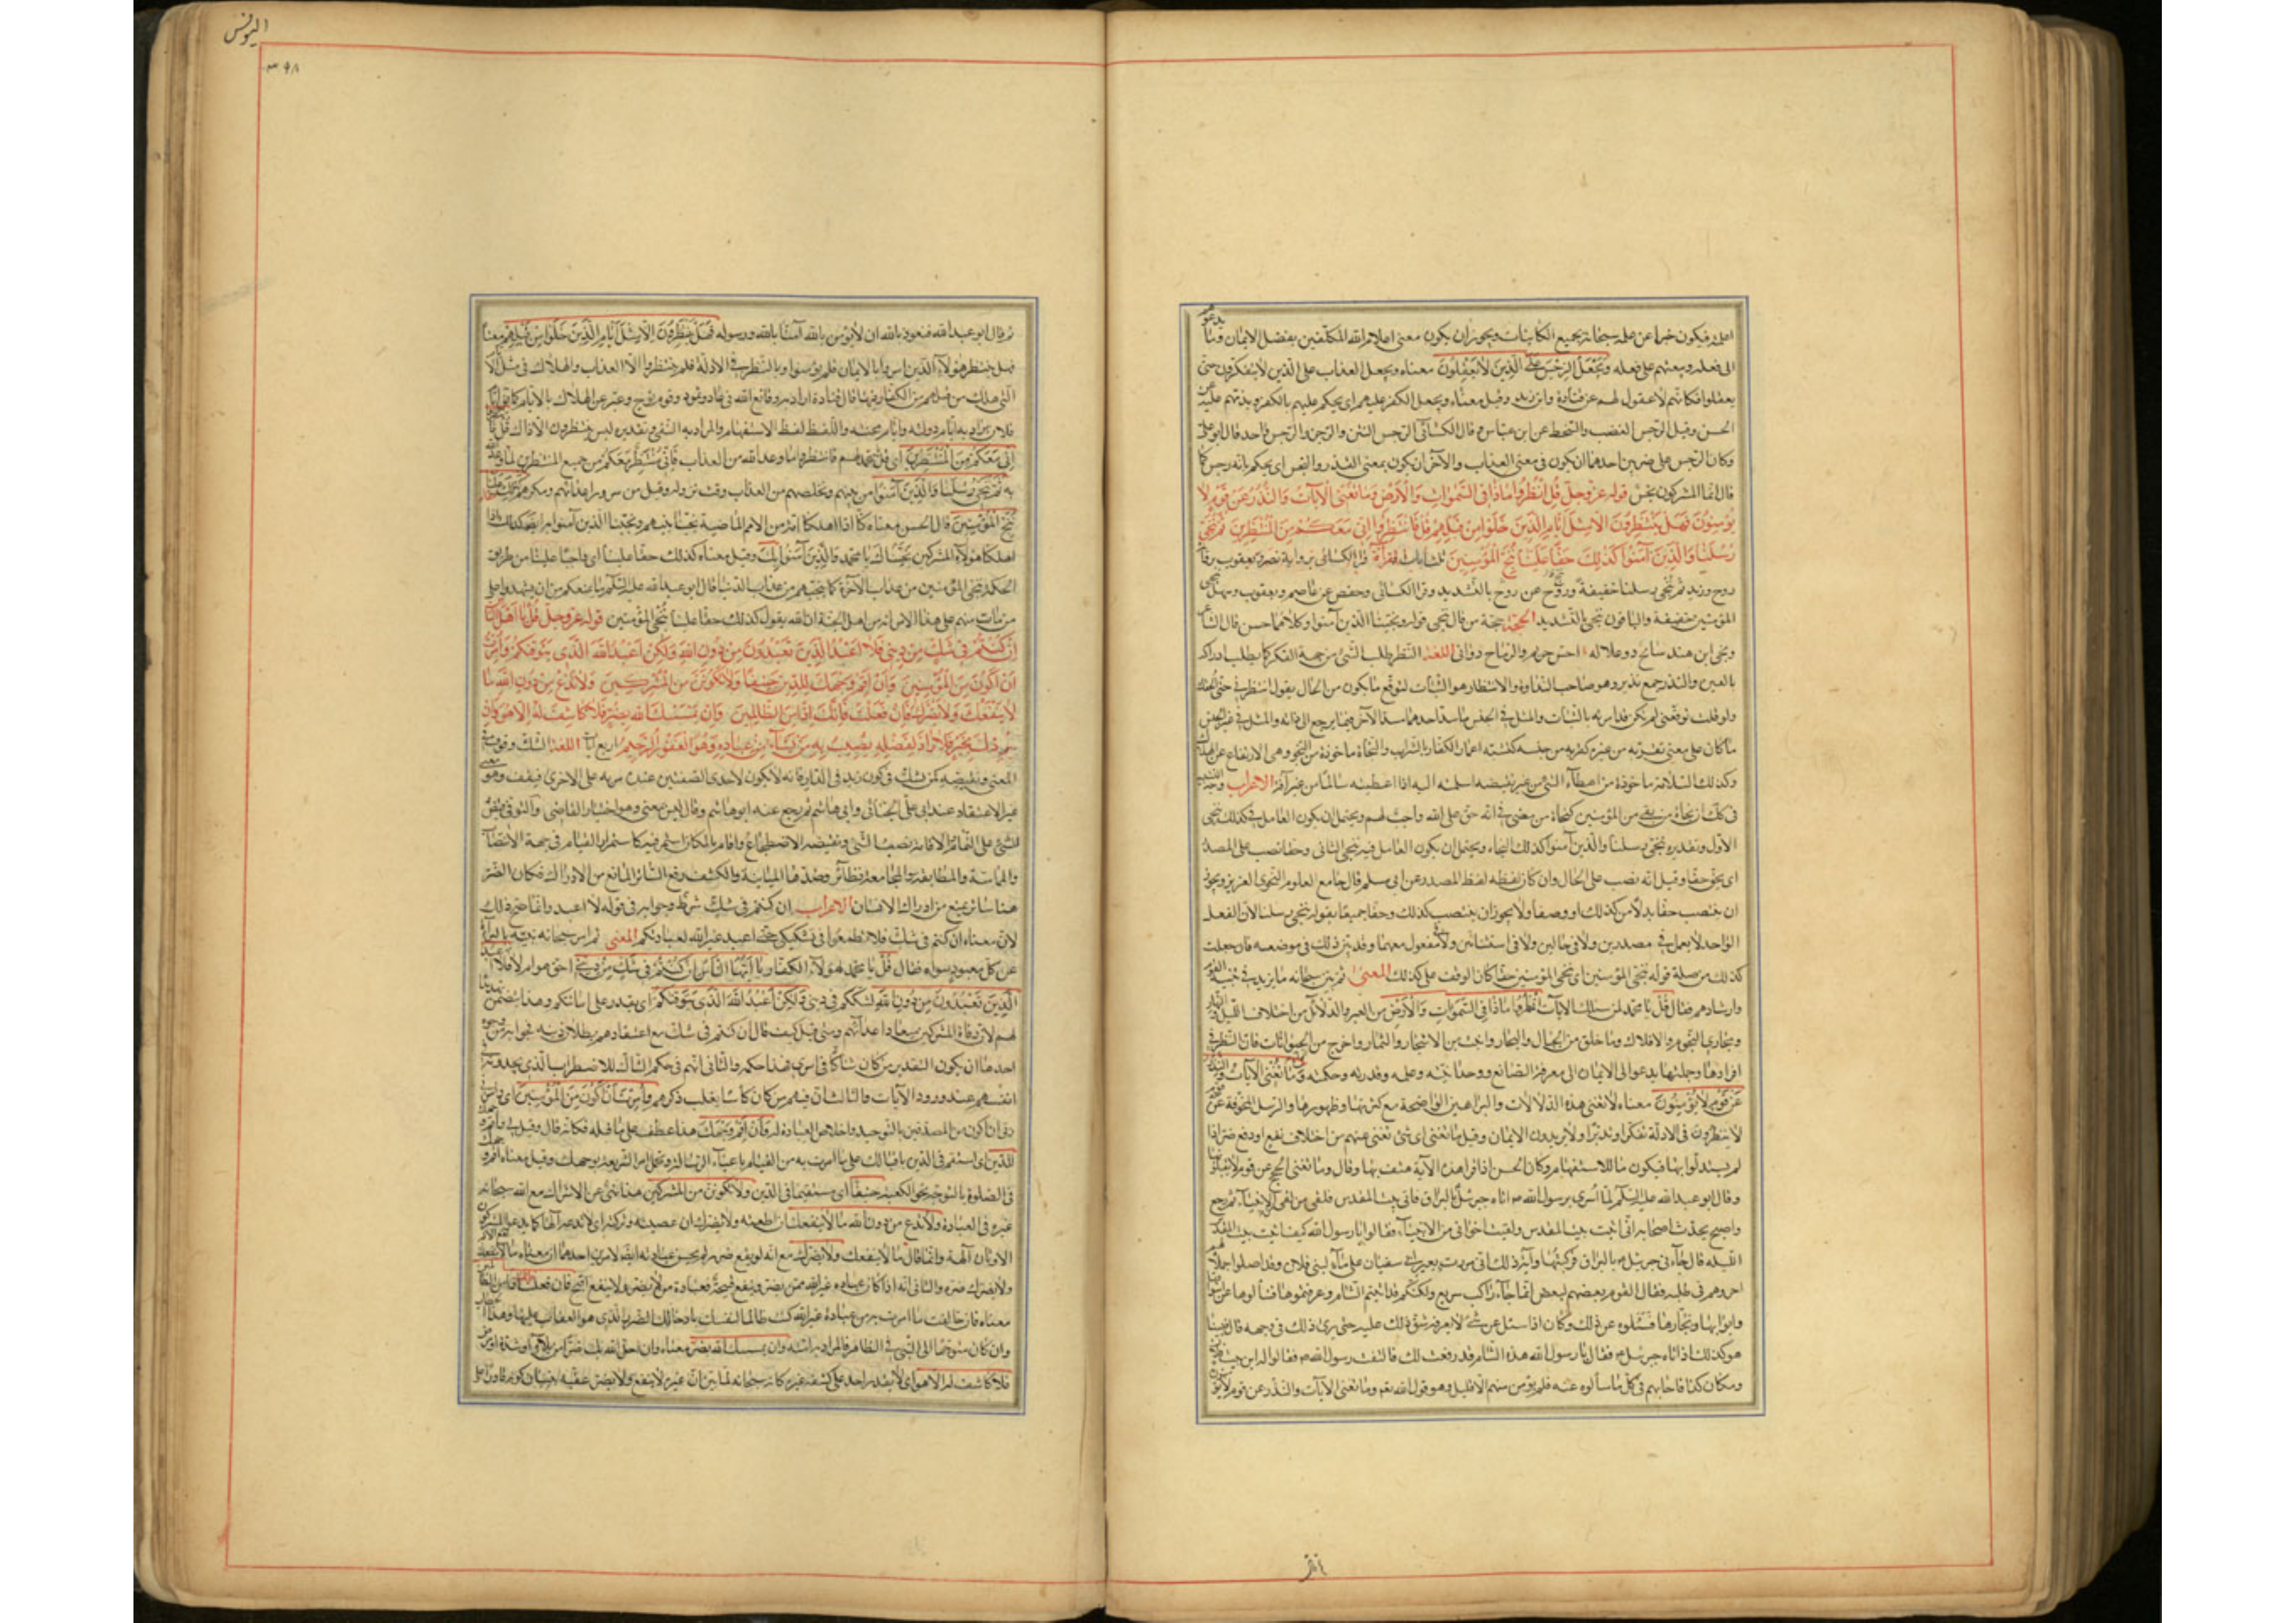 اعلمه فيكون خبرا عن علمه سبحانه بجميع الكاينات ويجوز ان يكون معنى اعلام الله المكلفين بفضل الايمان وما يدعو
الى فعله ويبعثهم على فعله وَيَجْعَلُ الرِّجْسَ عَلَى الَّذِينَ لَا يَعْقِلُونَ معناه ويجعل العذاب على الذين لا يتفكرون حتى
يعقلوا فكانهم لا عقول لهم عن قتادة وابن زيد وقيل معناه ويجعل الكفر عليهم اى يحكم عليهم بالكفر ويذمهم عليه عن
الحسن وقيل الرجس الغضب والسخط عن ابن عباس وقال الكسائى الرجس النتن والرجز والرجس واحد قال ابو على
وكان الرجس على ضربين احدهما ان يكون فى معنى العذاب والآخر ان يكون بمعنى القذر والنجس اى يحكم بانه رجس كما
قال انما المشركون نجس قوله عز وجل قُلِ انْظُرُوا مَاذَا فِى السَّمَوَاتِ وَالْأَرْضِ وَمَا تُغْنِى الْآيَاتُ وَالنُّذُرُ عَنْ قَوْمٍ لَا
يُؤْمِنُونَ فَهَلْ يَنْتَظِرُونَ إِلَّا مِثْلَ أَيَّامِ الَّذِينَ خَلَوْا مِنْ قَبْلِهِمْ قُلْ فَانْتَظِرُوا إِنِّى مَعَكُمْ مِنَ الْمُنْتَظِرِينَ ثُمَّ نُنَجِّى
رُسُلَنَا وَالَّذِينَ آمَنُوا كَذَلِكَ حَقًّا عَلَيْنَا نُنْجِ الْمُؤْمِنِينَ ثلث ايات القرآءة قرا الكسائى برواية نصر ويعقوب برواية
روح وزيد ثم ننجى رسلنا خفيفة وروح عن روح بالتشديد وقرا الكسائى وحفص عن عاصم ويعقوب وسهل ننجى
المؤمنين خفيفة والباقون ننجى بالتشديد الحجة حجة من قال ننجى قوله ونجينا الذين آمنوا وكلاهما حسن قال الشاعر
ونجى ابن هند سابح ذو علالة احش هزيم والرماح دوانى اللغة النظر طلب الشىء من جهة الفكر كما يطلب ادراكه
بالعين والنذر جمع نذير وهو صاحب النذارة والانتظار هو الثبات لتوقع ما يكون من الحال يقول انتظرنى حتى الحقك
ولو قلت توقعنى لم تكن قد امرته بالثبات والمثل فى الجنس ما سد احدهما مسد الآخر فيما يرجع الى ذاته والمثل فى غير الجنس
ما كان على معنى تقربه من غيره كقربه من جنسه كتشبيه اعمال الكفار بالسراب والنجاة ماخوذة من النجو وهى الارتفاع عن الهلاك
وكذلك السلامة ماخوذة من اعطاء الشىء من غير نقيصة اسلمته اليه اذا اعطيته سالما من غير آفة الاعراب وجه التشبيه
فى كذلك ان نجاة من بقى من المؤمنين كنجاة من مضى فى انه حق على الله واجب لهم ويحتمل ان يكون العامل فى كذلك ننجى
الاول وتقديره ننجى رسلنا والذين آمنوا كذلك النجاء ويحتمل ان يكون العامل فيه ننجى الثانى وحقا نصب على المصدر
اى يحق حقا وقيل انه نصب على الحال وان كان لفظه لفظ المصدر عن ابى مسلم قال جامع العلوم النحوى الغزيز ويجوز
ان ينتصب حقا بدلا من كذلك او وصفا ولا يجوز ان ينتصب كذلك وحقا جميعا بقوله ننجى رسلنا لان الفعل
الواحد لا يعمل فى مصدرين ولا فى حالين ولا فى استثنائين ولا مفعول معهما وقد بين ذلك فى موضعه فان جعلت
كذلك من صلة قوله ننجى المؤمنين اى ننجى المؤمنين حقا كان الوقف على كذلك المعنى ثم بين سبحانه ما يزيد فى تنبيه القوم
وارشادهم فقال قُلْ يا محمد لمن يسالك الآيات انْظُرُوا مَاذَا فِى السَّمَوَاتِ وَالْأَرْضِ من العبر والدلائل من اختلاف الليل والنهار
ومجارى النجوم والافلاك وما خلق من الجبال والبحار وانبت من الاشجار والثمار واخرج من الحيوانات فان النظر فى
افرادها وجملتها يدعو الى الايمان الى معرفة الصانع ووحدانيته وعلمه وقدرته وحكمته وَمَا تُغْنِى الْآيَاتُ وَالنُّذُرُ
عَنْ قَوْمٍ لَا يُؤْمِنُونَ معناه لا تغنى هذه الدلالات والبراهين الواضحة مع كثرتها وظهورها والرسل المخوفة عن قوم
لا ينظرون فى الادلة تفكرا وتدبرا ولا يريدون الايمان وقيل ما تغنى اى شىء تغنى عنهم من اختلاف نفع او دفع ضر اذا
لم يستدلوا بها فيكون ما للاستفهام وكان الحسن اذا قرا هذه الآية هتف بها وقال وما تغنى الحجج عن قوم لا يقبلونها
وقال ابو عبد الله عليه السلم لما اسرى برسول الله ص اتاه جبرئيل بالبراق فاتى بيت المقدس فلقى من لقى من الانبياء ثم رجع
واصبح يحدث اصحابه انى اتيت بيت المقدس ولقيت اخوانى من الانبياء فقالوا يا رسول الله كيف اتيت بيت المقدس
الليلة قال جاءنى جبرئيل بالبراق فركبتها وآية ذلك انى مررت بعير لابى سفيان على ماء لبنى فلان وقد اضلوا جملا لهم
احمر وهم فى طلبه فقال القوم بعضهم لبعض انما جاء راكب سريع ولكنكم قد اتيتم الشام وعرفتموها فسألوه عن اسواقها
وابوابها وتجارها فسئلوه عن ذلك وكان اذا سئل عن شىء لا يعرفه شق ذلك عليه حتى يرى ذلك فى وجهه قال فبينا
هو كذلك اذ اتاه جبرئيل فقال يا رسول الله هذه الشام قد رفعت لك فالتفت رسول الله ص فقالوا له اين بيت فلان
ومكان كذا فاجابهم فى كل ما سألوه عنه فلم يؤمن منهم الا قليل وهو قول الله تع وما تغنى الآيات والنذر عن قوم لا يؤمنون
اليونس
٣٩٨
ثم قال ابو عبد الله فنعوذ بالله ان لا نؤمن بالله آمنا بالله ورسوله فَهَلْ يَنْتَظِرُونَ إِلَّا مِثْلَ أَيَّامِ الَّذِينَ خَلَوْا مِنْ قَبْلِهِمْ معناه
فهل ينتظر هؤلاء الذين امروا بالايمان فلم يؤمنوا وبالنظر فى الادلة فلم ينظروا الا العذاب والهلاك فى مثل الايام
التى هلك من قبلهم من الكفار فيها قال قتادة اراد به وقائع الله فى عاد وثمود وقوم نوح وعبر عن الهلاك بالايام كما يقال ايام
فلان يراد به ايام دولته وايام محنته واللفظ لفظ الاستفهام والمراد به النفى وتقديره ليس ينتظرون الا ذاك قُلْ فَانْتَظِرُوا
إِنِّى مَعَكُمْ مِنَ الْمُنْتَظِرِينَ اى قل يا محمد لهم فانتظروا ما وعد الله من العذاب فانى منتظر معكم من جميع المنتظرين لما وعد الله
به ثُمَّ نُنَجِّى رُسُلَنَا وَالَّذِينَ آمَنُوا من بينهم ونخلصهم من العذاب وقت نزوله وقيل من شرور اعدائهم ومكرهم كَذَلِكَ حَقًّا عَلَيْنَا
نُنْجِ الْمُؤْمِنِينَ قال الحسن معناه كنا اذا اهلكنا امة من الامم الماضية نجينا نبيهم ونجينا الذين آمنوا به ايضا كذلك اذا
اهلكنا هؤلاء المشركين نجيناك يا محمد والذين آمنوا بك وقيل معناه كذلك حقا علينا اى واجبا علينا من طريق
الحكمة ننجى المؤمنين من عذاب الآخرة كما ننجيهم من عذاب الدنيا قال ابو عبد الله عليه السلم ما يمنعكم من ان تشهدوا على
من مات منكم على هذا الامر انه من اهل الجنة ان الله يقول كذلك حقا علينا ننجى المؤمنين قوله عز وجل قُلْ يَا أَيُّهَا النَّاسُ
إِنْ كُنْتُمْ فِى شَكٍّ مِنْ دِينِى فَلَا أَعْبُدُ الَّذِينَ تَعْبُدُونَ مِنْ دُونِ اللهِ وَلَكِنْ أَعْبُدُ اللهَ الَّذِى يَتَوَفَّاكُمْ وَأُمِرْتُ
أَنْ أَكُونَ مِنَ الْمُؤْمِنِينَ وَأَنْ أَقِمْ وَجْهَكَ لِلدِّينِ حَنِيفًا وَلَا تَكُونَنَّ مِنَ الْمُشْرِكِينَ وَلَا تَدْعُ مِنْ دُونِ اللهِ مَا
لَا يَنْفَعُكَ وَلَا يَضُرُّكَ فَإِنْ فَعَلْتَ فَإِنَّكَ إِذًا مِنَ الظَّالِمِينَ وَإِنْ يَمْسَسْكَ اللهُ بِضُرٍّ فَلَا كَاشِفَ لَهُ إِلَّا هُوَ وَإِنْ
يُرِدْكَ بِخَيْرٍ فَلَا رَادَّ لِفَضْلِهِ يُصِيبُ بِهِ مَنْ يَشَاءُ مِنْ عِبَادِهِ وَهُوَ الْغَفُورُ الرَّحِيمُ اربع آيات اللغة الشك وقوف فى
المعنى ونقيضه كمن شك فى كون زيد فى الدار فانه لا يكون لاحدى الصفتين عنده مزية على الاخرى فيقف وهو معنى
غير الاعتقاد عند ابى على الجبائى وابى هاشم ثم رجع عنه ابو هاشم وقال ليس بمعنى وهو اختيار القاضى والتوفى قبض
الشىء على التمام والاقامة نصب الشىء ونقيضه الاضطجاع واقام بالمكان استمر فيه كاستمرار القيام فى جهة الانتصاب
والمماسة والمطابقة والمجامعة نظائر وضدها المباينة والكشف رفع الساتر المانع من الادراك فكان الضر
هنا ساتر يمنع من ادراك الانسان الاعراب ان كنتم فى شك شرط وجوابه فى قوله لا اعبد وانما صح ذلك
لان معناه ان كنتم فى شك فلا تطمعوا فى تشكيكى حتى اعبد غير الله لعبادتكم المعنى ثم امر سبحانه نبيه بالبرآءة
عن كل معبود سواه فقال قُلْ يا محمد لهؤلاء الكفار يَا أَيُّهَا النَّاسُ إِنْ كُنْتُمْ فِى شَكٍّ مِنْ دِينِى احق هو ام لا فَلَا أَعْبُدُ
الَّذِينَ تَعْبُدُونَ مِنْ دُونِ اللهِ لشككم فى دينى وَلَكِنْ أَعْبُدُ اللهَ الَّذِى يَتَوَفَّاكُمْ اى يقدر على اماتتكم وهذا يتضمن تهديدا
لهم لان وفاة المشركين ميعاد عذابهم ومتى قيل كيف قال ان كنتم فى شك مع اعتقادهم بطلان دينه فجوابه من وجوه
احدها ان يكون التقدير من كان شاكا فى امرى فهذا حكمه والثانى انهم فى حكم الشاك للاضطراب الذى يجدونه فى
انفسهم عند ورود الآيات والثالث ان فيهم من كان شاكا فغلب ذكرهم وَأُمِرْتُ أَنْ أَكُونَ مِنَ الْمُؤْمِنِينَ اى وامرنى
ربى ان اكون من المصدقين بالتوحيد واخلاص العبادة له وَأَنْ أَقِمْ وَجْهَكَ هذا عطف على ما قبله فكانه قال وقيل لى واقم وجهك
لِلدِّينِ اى استقم فى الدين باقبالك على ما امرت به من القيام باعباء الرسالة وتحمل امر الشريعة بوجهك وقيل معناه اقم وجهك
فى الصلوة بالتوجه نحو الكعبة حَنِيفًا اى مستقيما فى الدين وَلَا تَكُونَنَّ مِنَ الْمُشْرِكِينَ هذا نهى عن الاشراك مع الله سبحانه
غيره فى العبادة وَلَا تَدْعُ مِنْ دُونِ اللهِ مَا لَا يَنْفَعُكَ ان اطعته وَلَا يَضُرُّكَ ان عصيته وتركته اى لا تدعه الها كما يدعو المشركون
الاوثان آلهة وانما قال ما لا ينفعك ولا يضرك مع انه لو نفع وضر لم يحسن عبادته ايضا لامرين احدهما ان معناه ما لا ينفعك نفع الاله
ولا يضرك ضره والثانى انه اذا كان عبادة غير الله ممن يضر وينفع قبيحة فعبادة من لا يضر ولا ينفع اقبح فَإِنْ فَعَلْتَ فَإِنَّكَ إِذًا مِنَ الظَّالِمِينَ
معناه فان خالفت ما امرت به من عبادة غير الله كنت ظالما لنفسك بادخالك الضرر الذى هو العقاب عليها وهذا الخطاب
وان كان متوجها الى النبى فى الظاهر فالمراد به امته وَإِنْ يَمْسَسْكَ اللهُ بِضُرٍّ معناه وان احل الله بك ضرا من بلاء او شدة او مرض
فَلَا كَاشِفَ لَهُ إِلَّا هُوَ اى لا يقدر احد على كشفه غيره كانه سبحانه لما بين ان غيره لا ينفع ولا يضر عقبه ببيان كونه قادرا على